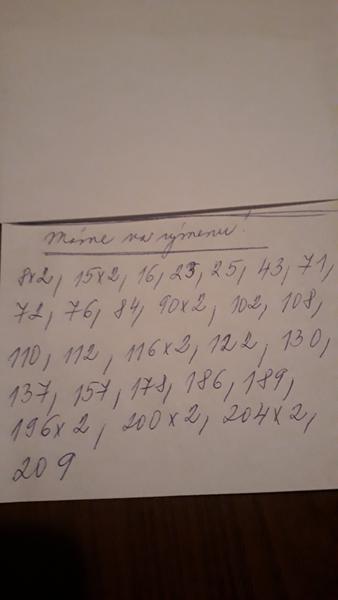 Máme na výmenu!
8x2, 15x2, 16, 23, 25, 43, 71,
72, 76, 84, 90x2, 102, 108,
110, 112, 116x2, 122, 130,
137, 157, 178, 186, 189,
196x2, 200x2, 204x2,
209